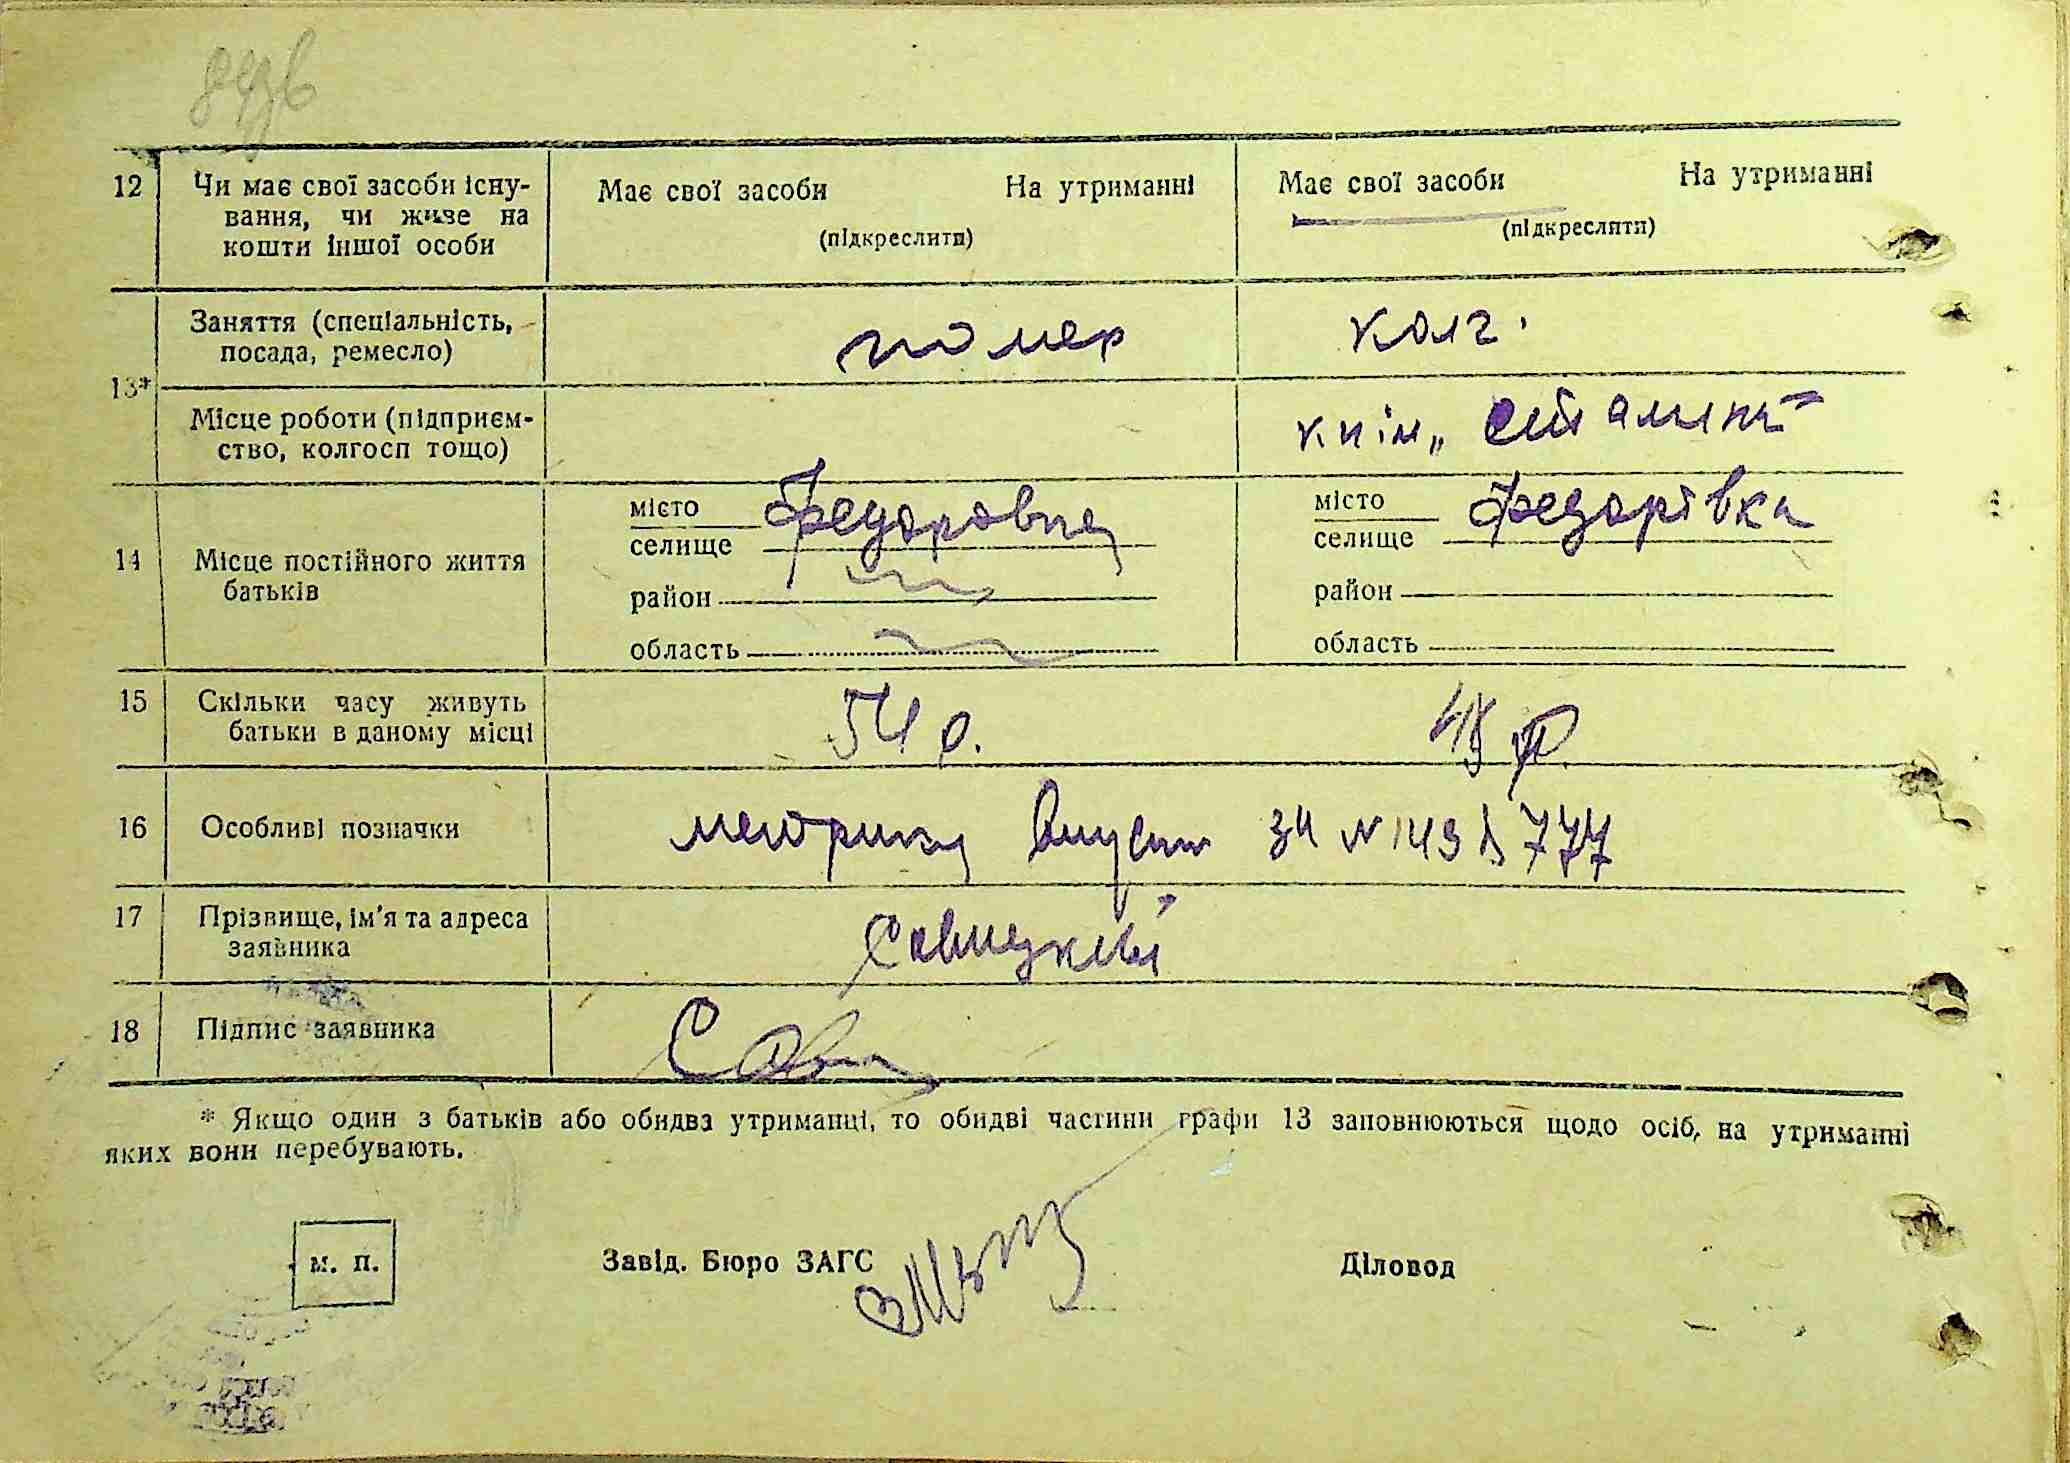 12 Чи має свої засоби існу-
вання, чи живе на
кошти іншої особи
Має свої засоби На утриманні
(підкреслити)
Має свої засоби На утриманні
(підкреслити)
13*
Заняття (спеціальність,
посада, ремесло)
помер
колг.
Місце роботи (підприєм-
ство, колгосп тощо)
к ім „Сталіна"
14 Місце постійного життя
батьків
місто
селище Федоровка
район
область
місто
селище Федорівка
район
область
15 Скільки часу живуть
батьки в даному місці
54 р.
16 Особливі позначки
метрику за № 149 777
17 Прізвище, ім'я та адреса
заявника
18 Підпис заявника
* Якщо один з батьків або обидва утриманці, то обидві частини графи 13 заповнюються щодо осіб, на утриманні
яких вони перебувають.
м. п.
Завід. Бюро ЗАГС
Діловод